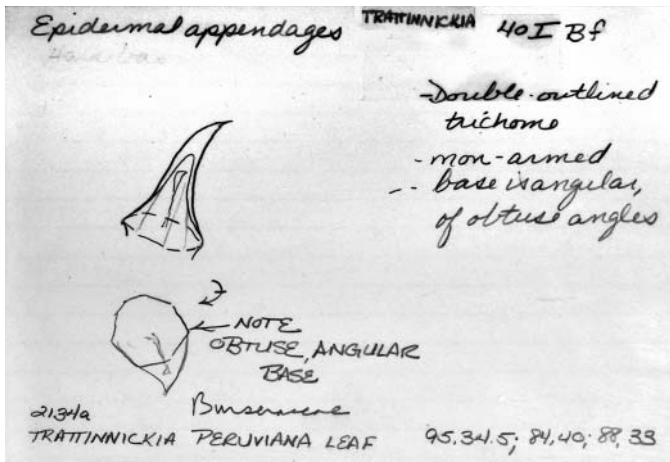 Epidermal appendages
TRATTINNICKIA
40 I Bf
-Double-outlined
trichome
- non-armed
-- base is angular,
of obtuse angles
NOTE
OBTUSE, ANGULAR
BASE
2134a
Burseraceae
TRATTINNICKIA PERUVIANA LEAF
95.34.5; 84,40; 88,33